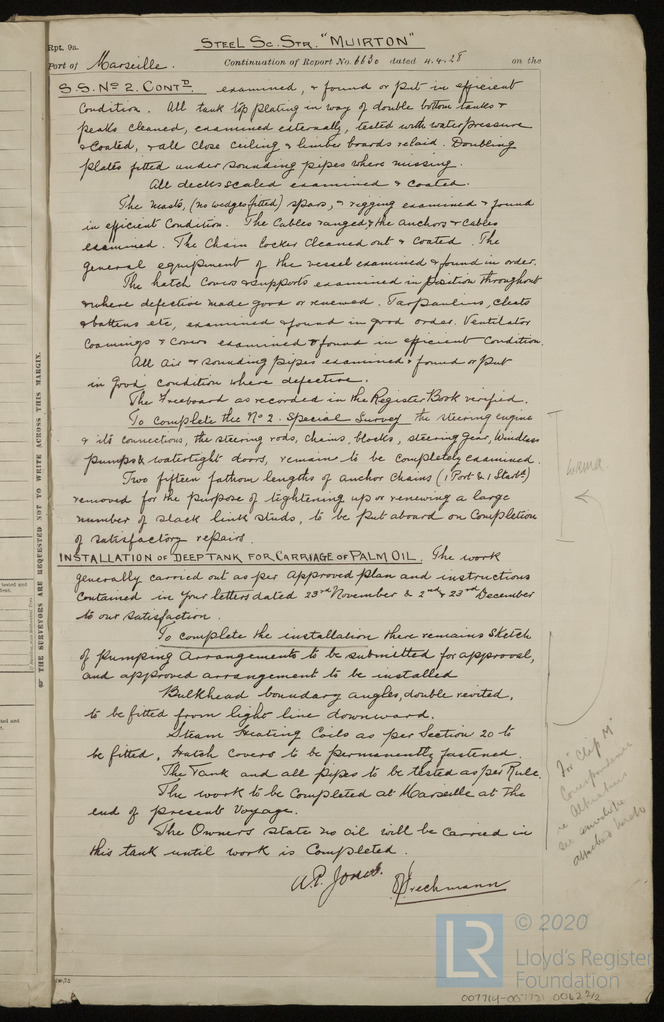 Rpt. 9a.
STEEL SC. STR. "MUIRTON"
Port of Marseille. Continuation of Report No. 6630 dated 4.4.28 on the
S.S. No 2. CONTD. examined, & found or put in efficient
Condition. All tank top plating in way of double bottom tanks &
peaks cleaned, examined externally, tested with water pressure
& Coated, & all close ceiling & limber boards relaid. Doubling
plates fitted under sounding pipes where missing.
All decks scaled examined & coated.
The masts, (no wedges fitted) spars, & rigging examined & found
in efficient Condition. The Cables ranged & the anchors & cables
examined. The Chain locker Cleaned out & Coated. The
general equipment of the vessel examined & found in order.
The hatch Covers & supports examined in position throughout
& where defective made good or renewed. Tarpaulins, cleats
& battens etc, examined & found in good order. Ventilator
Coamings & Covers examined & found in efficient Condition.
All air & sounding pipes examined & found or put
in good condition where defective.
The Freeboard as recorded in the Register Book verified.
To complete the No 2. Special Survey the steering engine
& its connections, the steering rods, chains, blocks, steering gear, Windlass
pumps & watertight doors, remain to be completely examined.
Two fifteen fathom lengths of anchor chains (1 Port & 1 Starbd)
removed for the purpose of tightening up or renewing a large
number of slack link studs, to be put aboard on Completion
of satisfactory repairs.
INSTALLATION OF DEEP TANK FOR CARRIAGE OF PALM OIL. The work
generally carried out as per Approved plan and instructions
Contained in Your letters dated 23rd November & 2nd & 23rd December
to our satisfaction.
To complete the installation there remains Sketch
of pumping Arrangements to be submitted for approval,
and approved arrangement to be installed
Bulkhead boundary angles, double revited,
to be fitted from light line downward.
Steam Heating Coils as per Section 20 to
be fitted. Hatch covers to be permanently fastened
The Tank and all pipes to be tested as per Rule.
The work to be Completed at Marseille at the
end of present Voyage.
The Owners state no oil will be Carried in
this tank until work is Completed.
W.P. Jones.
OF THE SURVEYORS ARE REQUESTED NOT TO WRITE ACROSS THIS MARGIN.
Correspondence
re Alterations
see envelope
attached hereto
© 2020
LR
Lloyd's Register
Foundation
007714-007721 0062 2/2